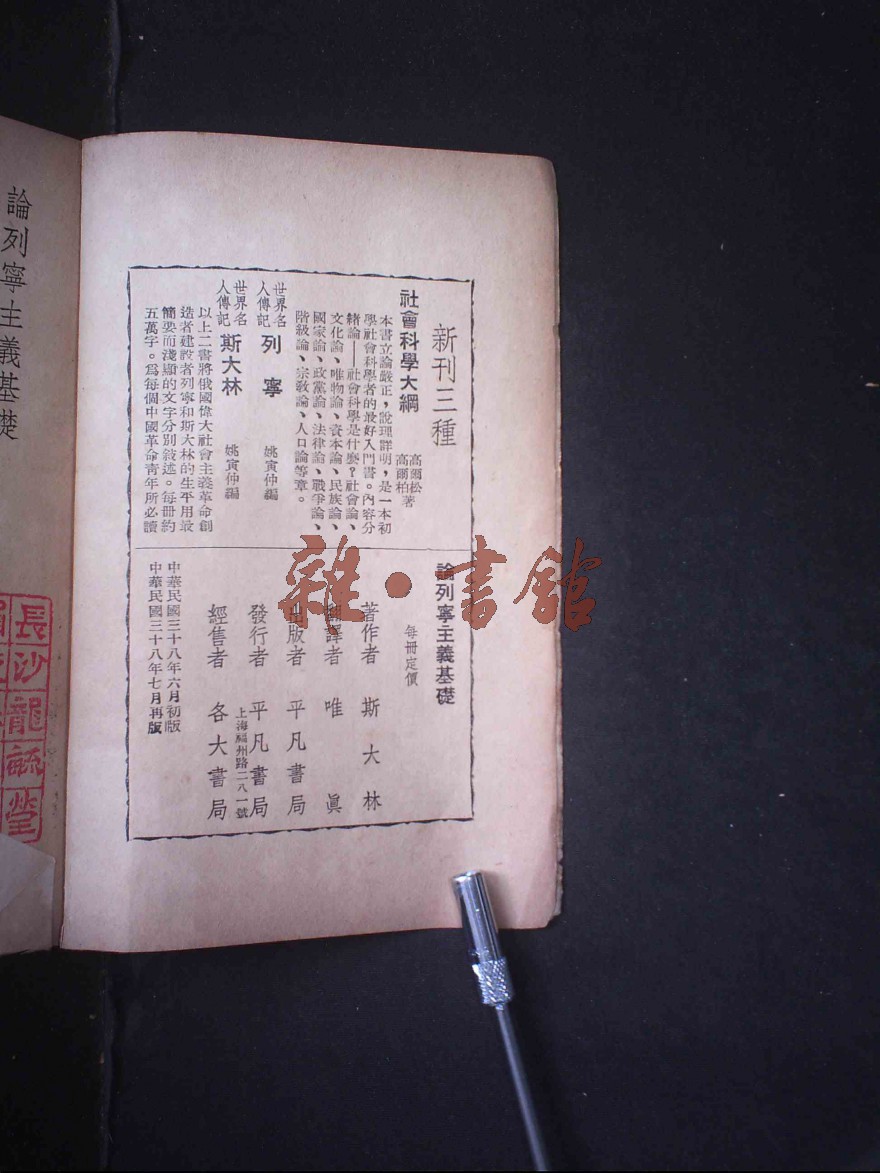 新刊三種
社會科學大綱
高爾松
高爾柏著
本書立論嚴正，說理詳明，是一本初
學社會科學者的最好入門書。內容分
緒論——社會科學是什麽？社會論、
文化論、唯物論、資本論、民族論、
國家論、政黨論、法律論、戰爭論、
階級論、宗教論、人口論等章。
世界名
人傳記
列寧
姚寅仲編
世界名
人傳記
斯大林
姚寅仲編
以上二書將俄國偉大社會主義革命創
造者建設者列寧和斯大林的生平用最
簡要而淺顯的文字分別敍述。每冊約
五萬字。爲每個中國革命青年所必讀
論列寧主義基礎
每冊定價
著作者 斯大林
翻譯者 唯眞
出版者 平凡書局
發行者 平凡書局
上海福州路二八一號
經售者 各大書局
中華民國三十八年六月初版
中華民國三十八年七月再版
論列寧主義基礎
長沙龍毓瑩
雜·書館